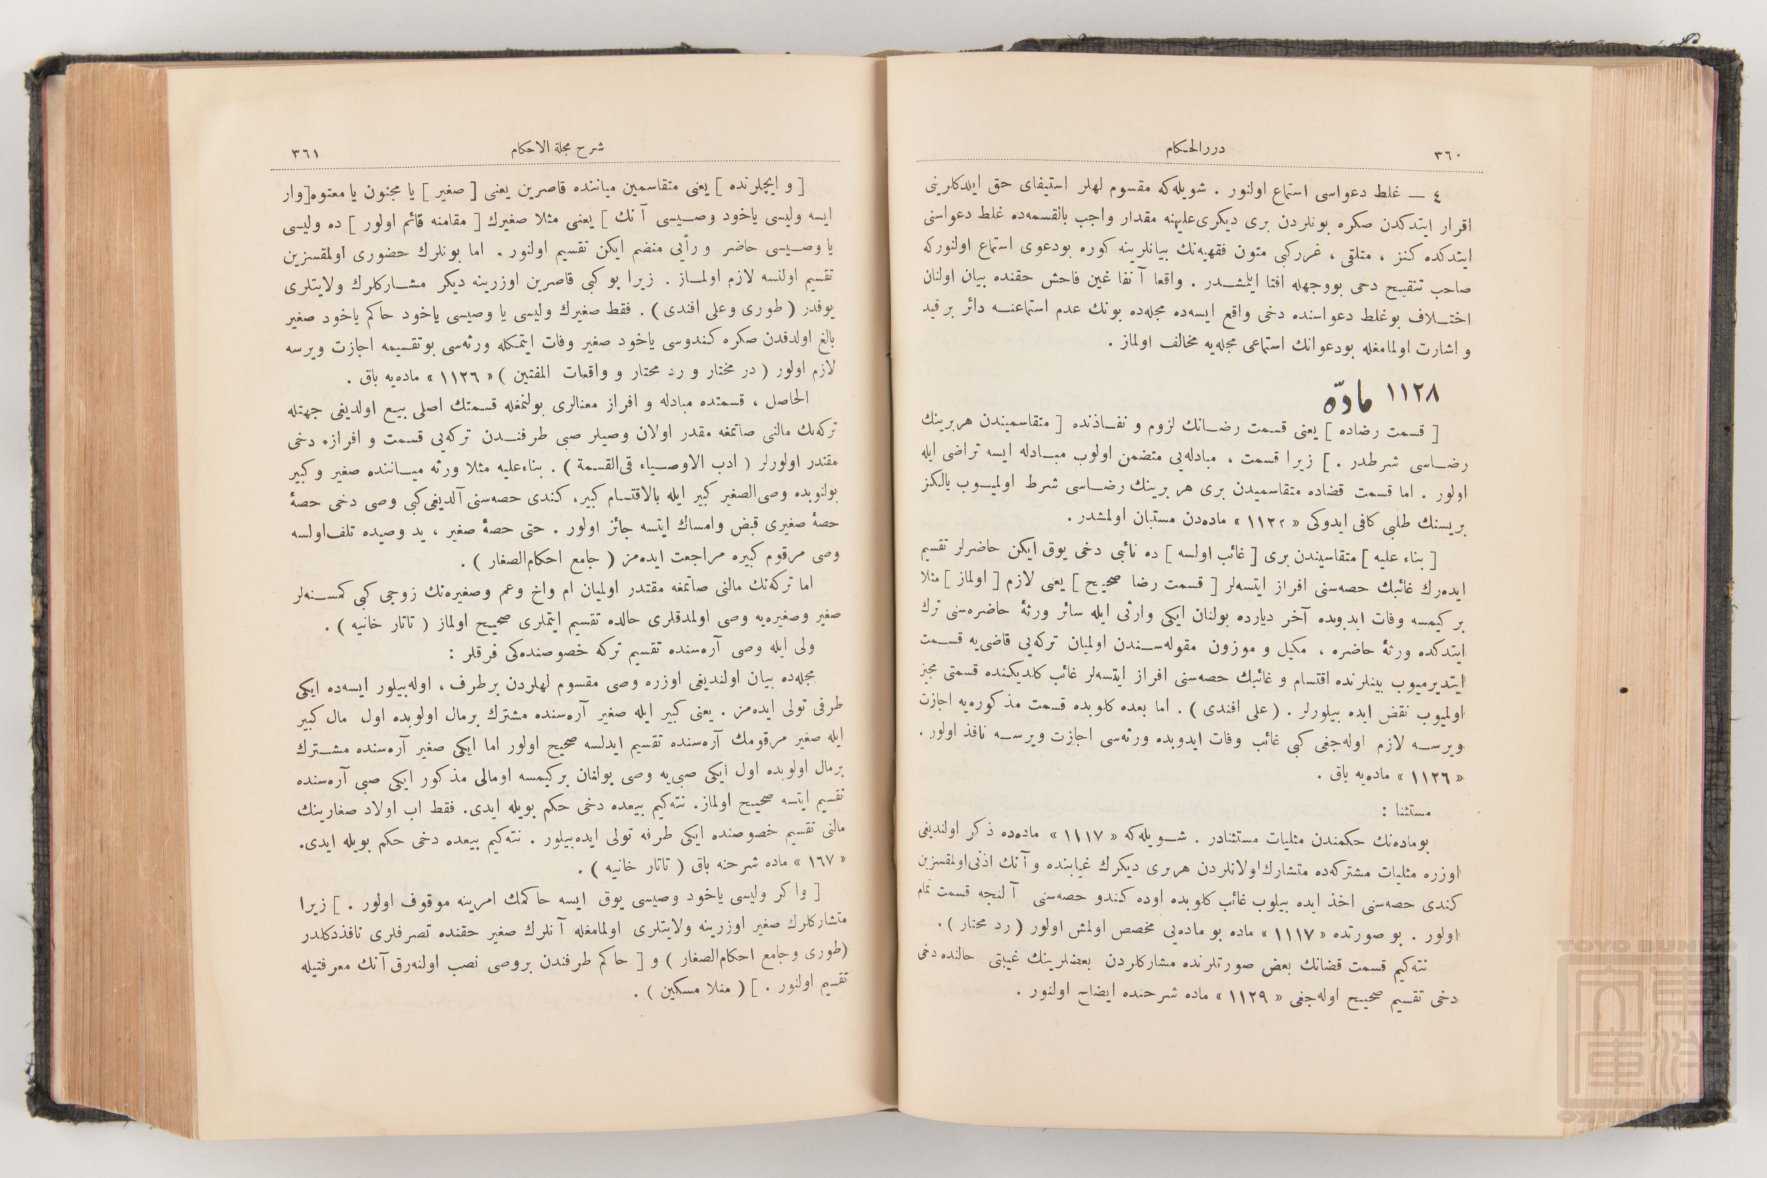 ٣٦٠
دررالحكام
٤ — غلط دعواسى استماع اولنور . شويله‌كه مقسوم لهلر استيفاى حق ايلدكلرينى
اقرار ايتدكدن صكره بونلردن برى ديكرى عليهنه مقدار واجب بالقسمه‌ده غلط دعواسنى
ايتدكده كنز ، ملتقى ، غرركبى متون فقهيه‌نك بيانلرينه كوره بودعوى استماع اولنوركه
صاحب تنقيح دخى بووجهله افتا ايلمشدر . واقعا آنفا غبن فاحش حقنده بيان اولنان
اختلاف بوغلط دعواسنده دخى واقع ايسه‌ده مجله‌ده بونك عدم استماعنه دائر برقيد
و اشارت اولمامغله بودعوانك استماعى مجله‌يه مخالف اولماز .
١١٢٨ مادّه
[ قسمت رضاده ] يعنى قسمت رضانك لزوم و نفاذنده [ متقاسميندن هربرينك
رضاسى شرطدر . ] زيرا قسمت ، مبادله‌يى متضمن اولوب مبادله ايسه تراضى ايله
اولور . اما قسمت قضاده متقاسميندن برى هر برينك رضاسى شرط اولميوب يالكز
بريسنك طلبى كافى ايدوكى « ١١٢٢ » ماده‌دن مستبان اولمشدر.
[ بناء عليه ] متقاسميندن برى [ غائب اولسه ] ده نائبى دخى يوق ايكن حاضرلر تقسيم
ايده‌رك غائبك حصه‌سنى افراز ايتسه‌لر [ قسمت رضا صحيح ] يعنى لازم [ اولماز ] مثلا
بر كيمسه وفات ايدوبده آخر ديارده بولنان ايكى وارثى ايله سائر ورثهٔ حاضره‌سنى ترك
ايتدكده ورثهٔ حاضره ، مكيل و موزون مقوله‌سندن اولميان تركه‌يى قاضى‌يه قسمت
ايتديرميوب بينلرنده اقتسام و غائبك حصه‌سنى افراز ايتسه‌لر غائب كلديكنده قسمتى مجيز
اولميوب نقض ايده بيلورلر . ( على افندى ) . اما بعده كلوبده قسمت مذكوره‌يه اجازت
ويرسه لازم اوله‌جغى كبى غائب وفات ايدوبده ورثه‌سى اجازت ويرسه نافذ اولور .
« ١١٢٦ » ماده‌يه باق .
مستثنا :
بوماده‌نك حكمندن مثليات مستثنادر . شويله‌كه « ١١١٧ » ماده‌ده ذكر اولنديغى
اوزره مثليات مشتركه‌ده متشارك اولانلردن هربرى ديكرك غيابنده و آنك اذنى اولمقسزين
كندى حصه‌سنى اخذ ايده بيلوب غائب كلوبده اوده كندو حصه‌سنى آلنجه قسمت تمام
اولور . بو صورتده « ١١١٧ » ماده بو ماده‌يى مخصص اولمش اولور ( رد محتار ) .
نته‌كيم قسمت قضانك بعض صورتلرنده مشاركلردن بعضلرينك غيبتى حالنده دخى
دخى تقسيم صحيح اوله‌جغى « ١١٢٩ » ماده شرحنده ايضاح اولنور .
شرح مجلة الاحكام
٣٦١
[ و ايچلرنده ] يعنى متقاسمين مياننده قاصرين يعنى [ صغير ] يا مجنون يا معتوه [ وار
ايسه وليسى ياخود وصيسى آنك ] يعنى مثلا صغيرك [ مقامنه قائم اولور ] ده وليسى
يا وصيسى حاضر و رأيى منضم ايكن تقسيم اولنور . اما بونلرك حضورى اولمقسزين
تقسيم اولنسه لازم اولماز . زيرا بو كبى قاصرين اوزرينه ديكر مشاركلرك ولايتلرى
يوقدر ( طورى وعلى افندى ) . فقط صغيرك وليسى يا وصيسى ياخود حاكم ياخود صغير
بالغ اولدقدن صكره كندوسى ياخود صغير وفات ايتمكله ورثه‌سى بوتقسيمه اجازت ويرسه
لازم اولور ( در مختار و رد محتار و واقعات المفتين ) « ١١٢٦ » ماده‌يه باق .
الحاصل ، قسمتده مبادله و افراز معنالرى بولنمغله قسمتك اصلى بيع اولديغى جهتله
تركه‌نك مالنى صاتمغه مقدر اولان وصيلر صبى طرفندن تركه‌يى قسمت و افرازه دخى
مقتدر اولورلر ( ادب الاوصياء فى القسمة ) . بناءعليه مثلا ورثه مياننده صغير و كبير
بولنوبده وصى الصغير كبير ايله بالاقتسام كبير، كندى حصه‌سنى آلديغى كبى وصى دخى حصهٔ
حصهٔ صغيرى قبض وامساك ايتسه جائز اولور . حتى حصهٔ صغير ، يد وصيده تلف اولسه
وصى مرقوم كبيره مراجعت ايده‌مز ( جامع احكام‌الصغار ) .
اما تركه‌نك مالنى صاتمغه مقتدر اولميان ام واخ وعم وصغيره‌نك زوجى كبى كمسنه‌لر
صغير وصغيره‌يه وصى اولمدقلرى حالده تقسيم ايتملرى صحيح اولماز ( تاتار خانيه ) .
ولى ايله وصى آره‌سنده تقسيم تركه خصوصنده‌كى فرقلر :
مجله‌ده بيان اولنديغى اوزره وصى مقسوم لهلردن برطرف ، اوله‌بيلور ايسه‌ده ايكى
طرفى تولى ايده‌مز . يعنى كبير ايله صغير آره‌سنده مشترك برمال اولوبده اول مال كبير
ايله صغير مرقومك آره‌سنده تقسيم ايدلسه صحيح اولور اما ايكى صغير آره‌سنده مشترك
برمال اولوبده اول ايكى صبى‌يه وصى بولنان بركيمسه اومالى مذكور ايكى صبى آره‌سنده
تقسيم ايتسه صحيح اولماز. نته‌كيم بيعده دخى حكم بويله ايدى. فقط اب اولاد صغارينك
مالنى تقسيم خصوصنده ايكى طرفه تولى ايده‌بيلور . نته‌كيم بيعده دخى حكم بويله ايدى.
« ١٦٧ » ماده شرحنه باق ( تاتار خانيه ) .
[ واكر وليسى ياخود وصيسى يوق ايسه حاكمك امرينه موقوف اولور . ] زيرا
متشاركلرك صغير اوزرينه ولايتلرى اولمامغله آنلرك صغير حقنده تصرفلرى نافذدكلدر
(طورى وجامع احكام‌الصغار ) و [ حاكم طرفندن بروصى نصب اولنه‌رق آنك معرفتيله
تقسيم اولنور . ] ( منلا مسكين ) .
TOYO BUNKO